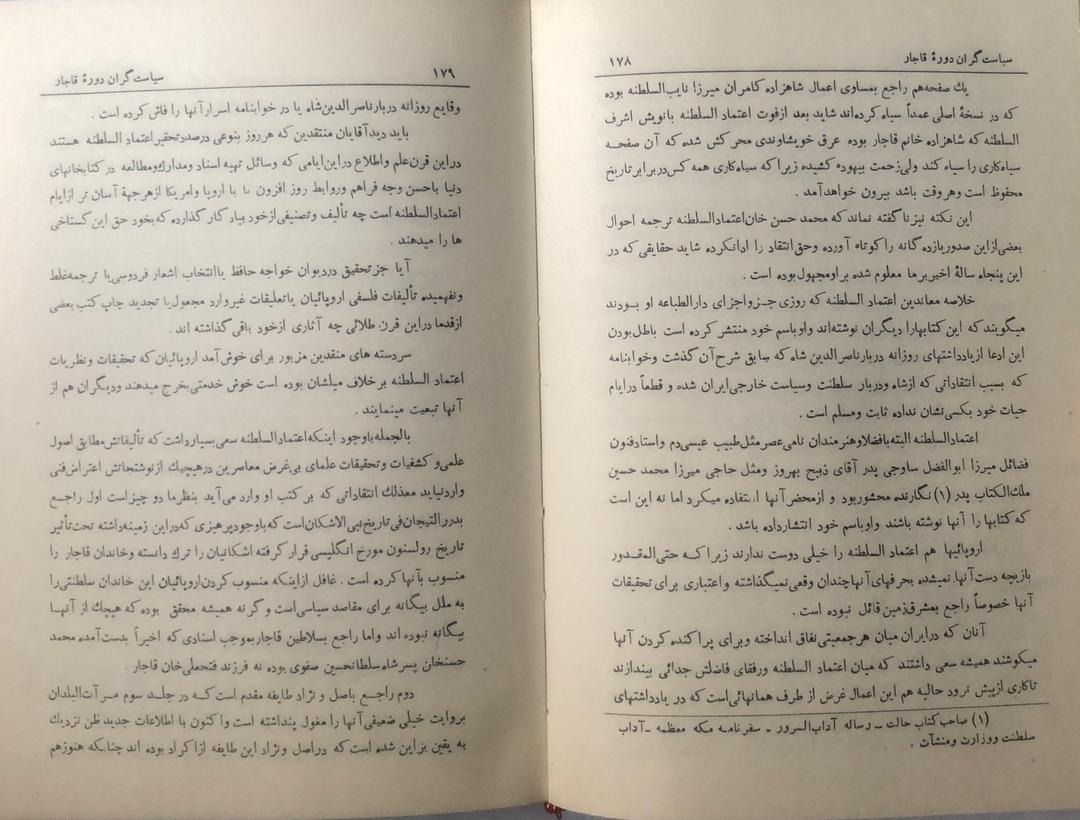 سیاست‌گران دورهٔ قاجار
۱۷۸
یك صفحه‌هم راجع بمساوی اعمال شاهزاده کامران میرزا نایب‌السلطنه بوده
که در نسخهٔ اصلی عمداً سیاه کرده‌اند شاید بعد ازفوت اعتماد السلطنه بانویش اشرف
السلطنه که شاهزاده خانم قاجار بوده عرق خویشاوندی محرکش شده که آن صفحه
سیاه‌کاری را سیاه کند ولی‌زحمت بیهوده کشیده زیرا که سیاه‌کاری همه کس‌در برابر تاریخ
محفوظ است وهروقت باشد بیرون خواهدآمد .
این نکته نیز ناگفته نماند که محمد حسن خان‌اعتماد‌السلطنه ترجمه احوال
بعضی‌ازاین صدور‌یازده گانه را کوتاه آورده وحق‌انتقاد را ادانکرده شاید حقایقی که در
این پنجاه سالهٔ اخیر برما معلوم شده براومجهول‌بوده است .
خلاصه معاندین اعتماد السلطنه که روزی جزو‌اجزای دارالطباعه او بودند
میگویند که این کتابهارا دیگران نوشته‌اند واوباسم خود منتشر کرده است باطل‌بودن
این ادعا از‌یادداشتهای روزانه دربار ناصرالدین شاه که سابق شرح‌آن گذشت وخوابنامه
که بسبب انتقاداتی که ازشاه ودربار سلطنت وسیاست خارجی‌ایران شده و قطعاً در‌ایام
حیات خود بکسی‌نشان نداده ثابت ومسلم است .
اعتماد‌السلطنه البته بافضلا‌وهنرمندان نامی‌عصر مثل‌طبیب عیسی‌دم واستاد‌فنون
فضائل میرزا ابوالفضل ساوجی پدر آقای ذبیح بهروز ومثل حاجی میرزا محمد حسین
ملك‌الکتاب پدر (۱) نگارنده محشور‌بود و از‌محضر آنها استفاده میکرد اما نه این است
که کتابها را آنها نوشته باشند واوباسم خود انتشارداده باشد .
اروپائیها هم اعتماد السلطنه را خیلی دوست ندارند زیرا که حتی‌المقدور
بازیچه دست آنها نمیشده بحرفهای آنها‌چندان وقعی‌نمیگذاشته و‌اعتباری برای تحقیقات
آنها خصوصاً راجع بمشرق‌زمین قائل نبوده است .
آنان که در‌ایران میان هرجمعیتی‌نفاق انداخته وبرای پراکنده کردن آنها
میکوشند همیشه سعی داشتند که میان اعتماد السلطنه ورفقای فاضلش جدائی بیندازند
تاکاری ازپیش نرود حالیه هم این اعمال غرض از طرف همانهائی‌است که در یادداشتهای
(۱) صاحب کتاب حالت ـ رساله آداب‌السرور ـ سفرنامه مکه معظمه ـ آداب
سلطنت ووزارت ومنشآت .
۱۷۹
سیاست‌گران دورهٔ قاجار
وقایع روزانه دربار‌ناصر‌الدین‌شاه یا در خوابنامه اسرار‌آنها را فاش کرده است .
باید دید آقایان منتقدین که هر‌روز بنوعی در‌صدد‌تحقیر‌اعتماد السلطنه هستند
در‌این قرن‌علم واطلاع در‌این‌ایامی که وسائل تهیه اسناد ومدارك‌ومطالعه در کتابخانهای
دنیا باحسن وجه فراهم وروابط روز افزون ما با اروپا وامریکا ازهر‌جهة آسان تر ازایام
اعتماد‌السلطنه است چه تألیف و‌تصنیفی ازخود بیاد گار گذارده که‌بخود حق این گستاخی
ها را میدهند .
آیا جز‌تحقیق در‌دیوان خواجه حافظ یا‌انتخاب اشعار فردوسی‌یا ترجمه‌غلط
ونفهمیده تألیفات فلسفی اروپائیان یا‌تعلیقات غیر‌وارد مجعول‌یا تجدید چاپ کتب بعضی
ازقدما در‌این قرن طلائی چه آثاری ازخود باقی گذاشته اند .
سردسته های منقدین مزبور برای خوش‌آمد اروپائیان که تحقیقات ونظریات
اعتماد السلطنه برخلاف میلشان بوده است خوش خدمتی‌بخرج میدهند ودیگران هم از
آنها تبعیت مینمایند .
بالجمله‌باوجود اینکه‌اعتماد‌السلطنه سعی‌بسیار‌داشت که تألیفاتش مطابق اصول
علمی‌و کشفیات وتحقیقات علمای بی‌غرض معاصرین در‌هیچیك ازنوشتجاتش اعتراض‌فنی
وارد‌نیاید معذلك انتقاداتی که بر کتب او وارد می‌آید بنظر‌ما دو چیز‌است اول راجع
بدرر‌التیجان‌فی‌تاریخ‌بنی‌الاشکان‌است که‌باوجود‌پرهیزی که‌در‌این زمینه‌داشته تحت‌تأثیر
تاریخ رولسنون مورخ انگلیسی قرار گرفته اشکانیان را ترك دانسته وخاندان قاجار را
منسوب بآنها کرده است . غافل ازاینکه منسوب کردن‌اروپائیان این خاندان سلطنتی‌را
به ملل بیگانه برای مقاصد سیاسی‌است و گر نه همیشه محقق بوده که هیچك از آنها
بیگانه نبوده اند واما راجع بسلاطین قاجار‌بموجب اسنادی که اخیراً بدست‌آمده محمد
حسنخان پسر‌شاه‌سلطانحسین صفوی بوده نه فرزند فتحعلی‌خان قاجار .
دوم راجع باصل و نژاد طایفه مقدم است که در جلد سوم مرآت‌البلدان
بروایت خیلی ضعیفی آنها را مغول پنداشته است واکنون با اطلاعات جدید ظن نزدیك
به یقین براین شده است که در‌اصل ونژاد این طایفه ازا‌کراد بوده اند چنانکه هنوزهم